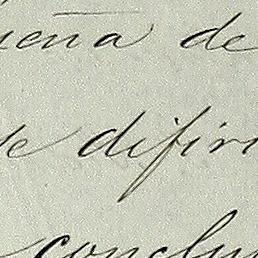 ueña de
se difiri
conclu